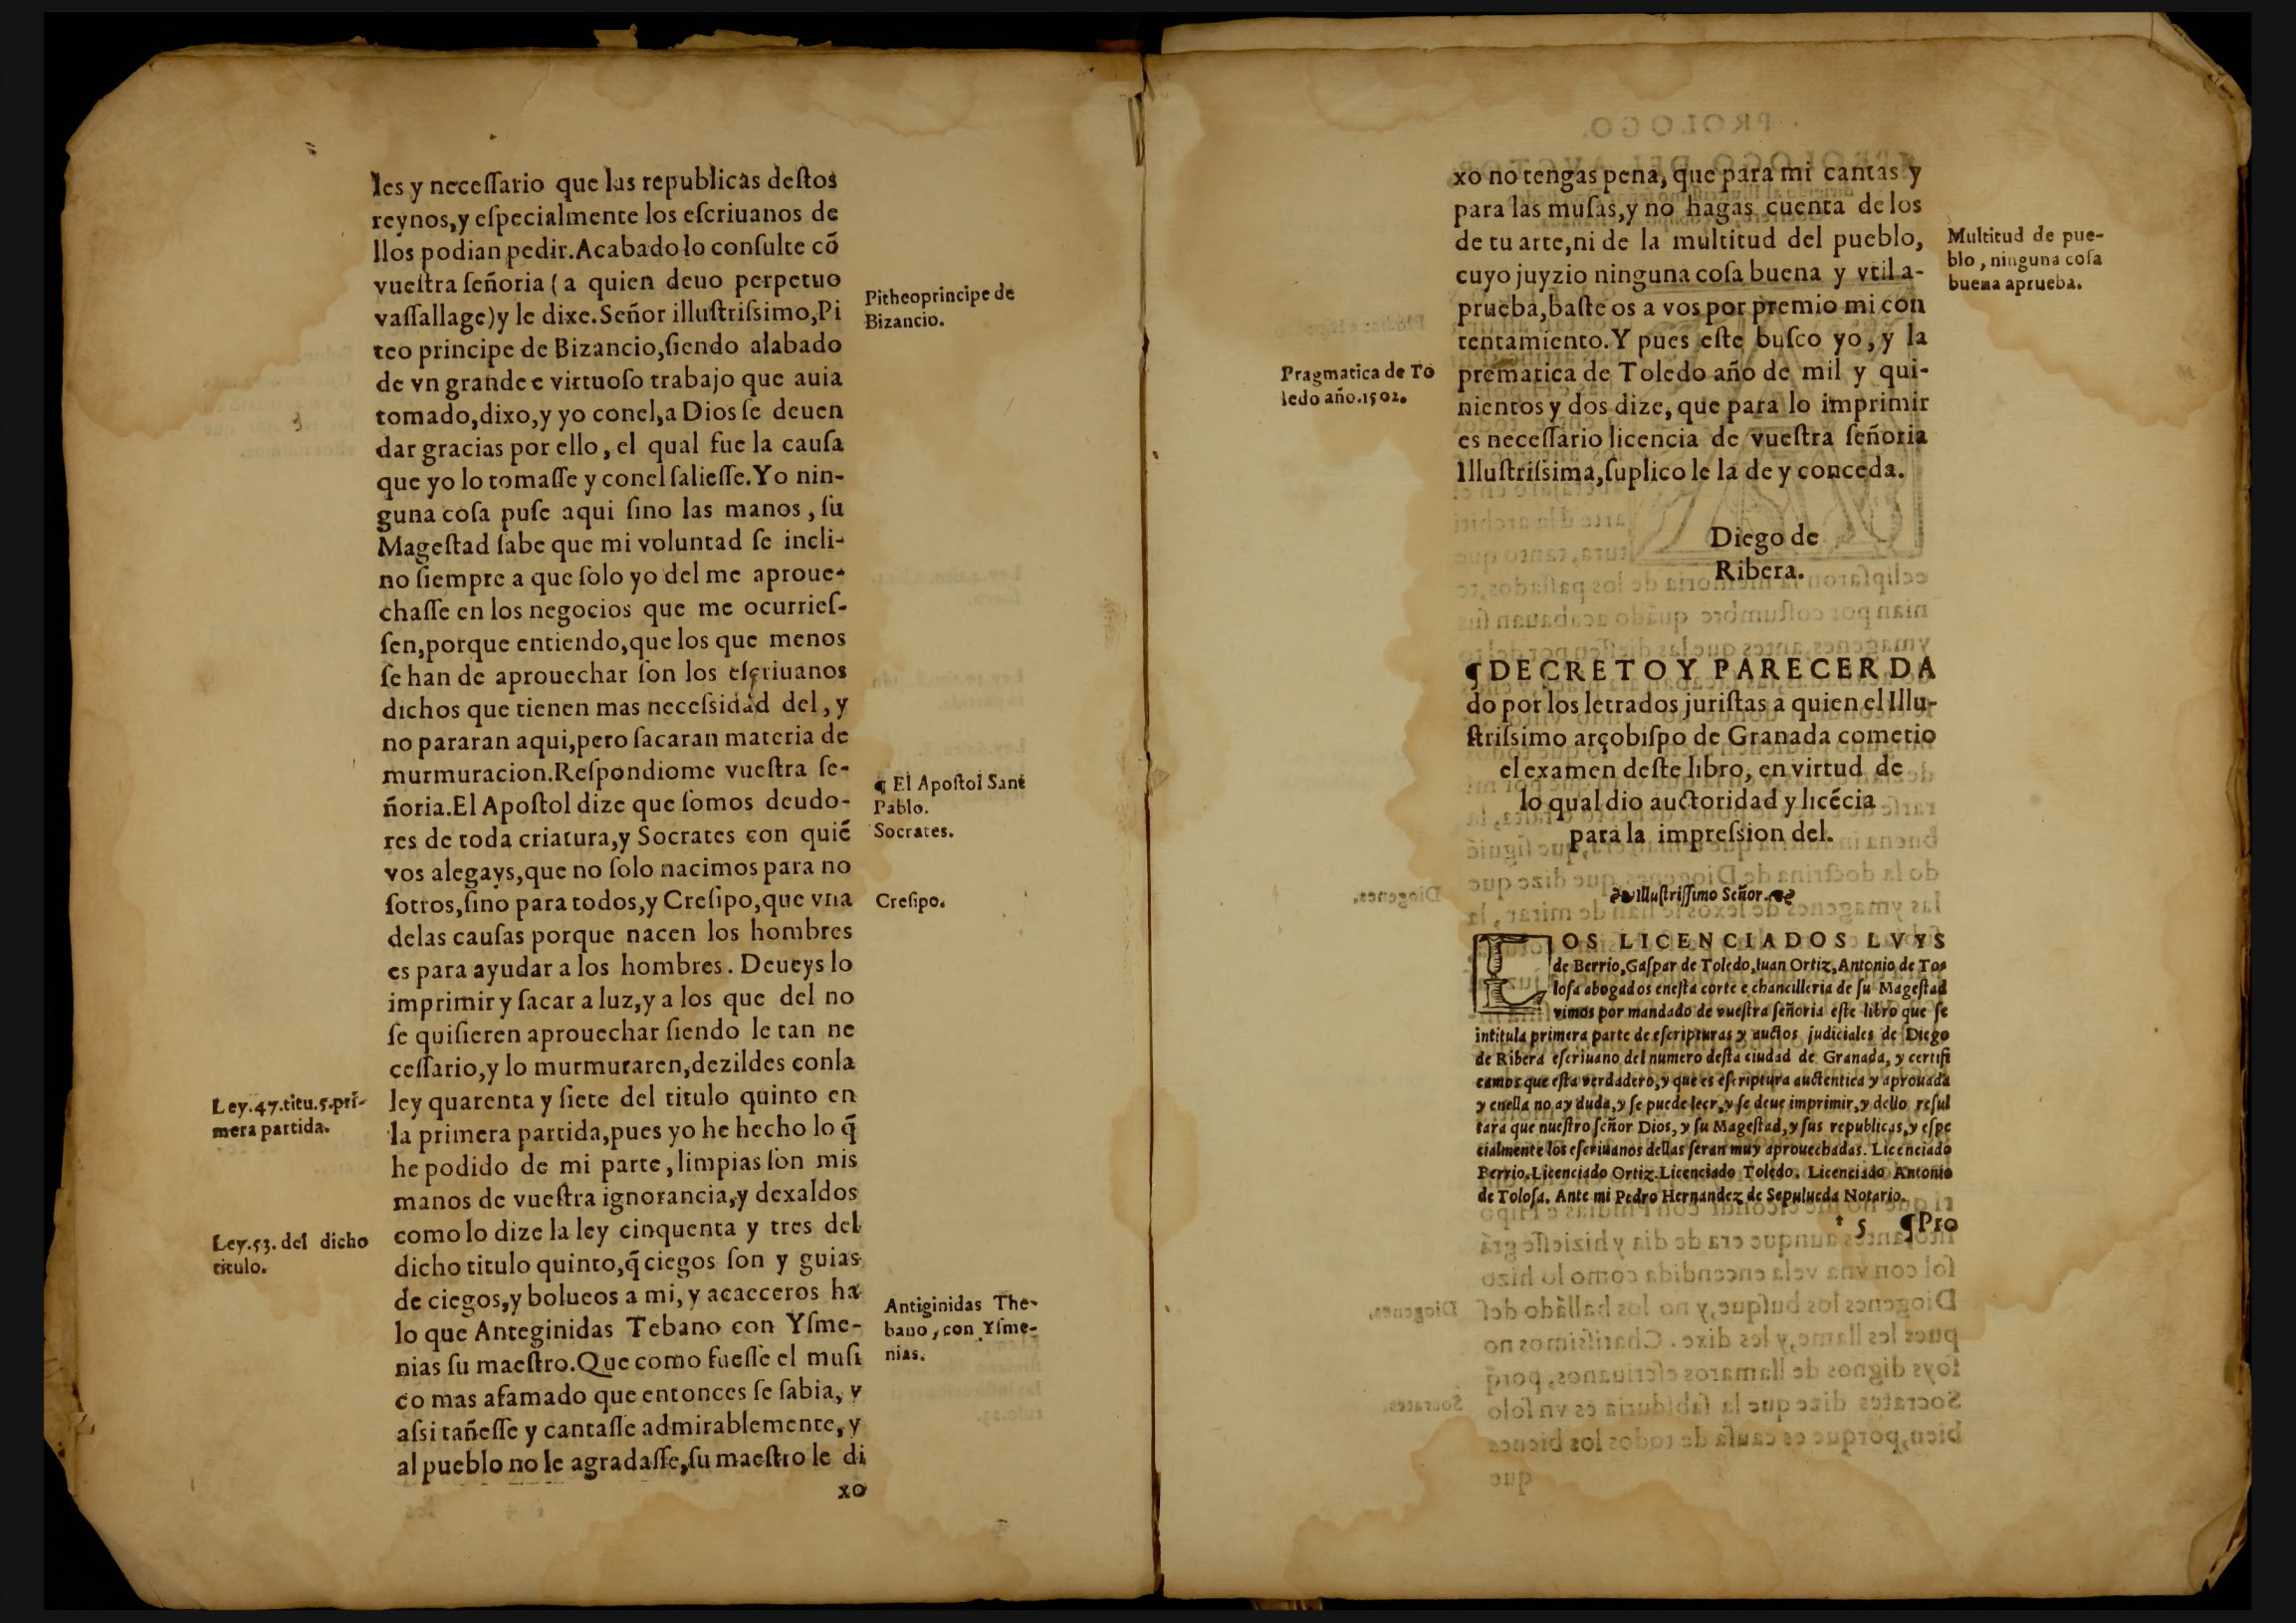 les y necessario que las republicas destos
reynos,y especialmente los escriuanos de
llos podian pedir.Acabado lo consulte cõ
vuestra señoria ( a quien deuo perpetuo
vassallage)y le dixe.Señor illustrissimo,Pi
teo principe de Bizancio,siendo alabado
de vn grande e virtuoso trabajo que auia
tomado,dixo,y yo conel,a Dios se deuen
dar gracias por ello, el qual fue la causa
que yo lo tomasse y conel saliesse.Yo nin-
guna cosa puse aqui sino las manos , su
Magestad sabe que mi voluntad se incli-
no siempre a que solo yo del me aproue-
chasse en los negocios que me ocurries-
sen,porque entiendo,que los que menos
se han de aprouechar son los escriuanos
dichos que tienen mas necessidad del , y
no pararan aqui,pero sacaran materia de
murmuracion.Respondiome vuestra se-
ñoria.El Apostol dize que somos deudo-
res de toda criatura,y Socrates con quiẽ
vos alegays,que no solo nacimos para no
sotros,sino para todos,y Cresipo,que vna
delas causas porque nacen los hombres
es para ayudar a los hombres. Deueys lo
imprimir y sacar a luz,y a los que del no
se quisieren aprouechar siendo le tan ne
cessario,y lo murmuraren,dezildes conla
ley quarenta y siete del titulo quinto en
la primera partida,pues yo he hecho lo q̃
he podido de mi parte, limpias son mis
manos de vuestra ignorancia,y dexaldos
como lo dize la ley cinquenta y tres del
dicho titulo quinto,q̃ ciegos son y guias
de ciegos,y bolueos a mi, y acaeceros ha
lo que Anteginidas Tebano con Ysme-
nias su maestro.Que como fuesse el musi
co mas afamado que entonces se sabia, y
assi tañesse y cantasse admirablemente, y
al pueblo no le agradasse,su maestro le di
xo
Pitheo principe de
Bizancio.
¶ El Apostol Sant
Pablo.
Socrates.
Cresipo.
Ley.47.titu.5.pri-
mera partida.
Ley.53. del dicho
titulo.
Antiginidas The-
bano , con Ysme-
nias.
xo no tengas pena, que para mi cantas y
para las musas,y no hagas cuenta de los
de tu arte,ni de la multitud del pueblo,
cuyo juyzio ninguna cosa buena y vtil a-
prueba,baste os a vos por premio mi con
tentamiento.Y pues este busco yo, y la
prematica de Toledo año de mil y qui-
nientos y dos dize, que para lo imprimir
es necessario licencia de vuestra señoria
Illustrissima,suplico le la de y conceda.
Multitud de pue-
blo , ninguna cosa
buena aprueba.
Pragmatica de To
ledo año.1502.
Diego de
Ribera.
¶ DECRETO Y PARECER DA
do por los letrados juristas a quien el Illu-
strissimo arçobispo de Granada cometio
el examen deste libro, en virtud de
lo qual dio auctoridad y licẽcia
para la impression del.
Illustrissimo Señor.
LOS LICENCIADOS LVYS
de Berrio,Gaspar de Toledo,Iuan Ortiz,Antonio de To-
losa abogados enesta corte e chancilleria de su Magestad
vimos por mandado de vuestra señoria este libro que se
intitula primera parte de escripturas y auctos judiciales de Diego
de Ribera escriuano del numero desta ciudad de Granada, y certifi
camos que esta verdadero,y que es escriptura auctentica y aprouada
y enella no ay duda,y se puede leer,y se deue imprimir,y dello resul
tara que nuestro señor Dios, y su Magestad,y sus republicas,y espe
cialmente los escriuanos dellas seran muy aprouechadas. Licenciado
Berrio.Licenciado Ortiz.Licenciado Toledo. Licenciado Antonio
de Tolosa. Ante mi Pedro Hernandez de Sepulueda Notario.
† 5 ¶Pro